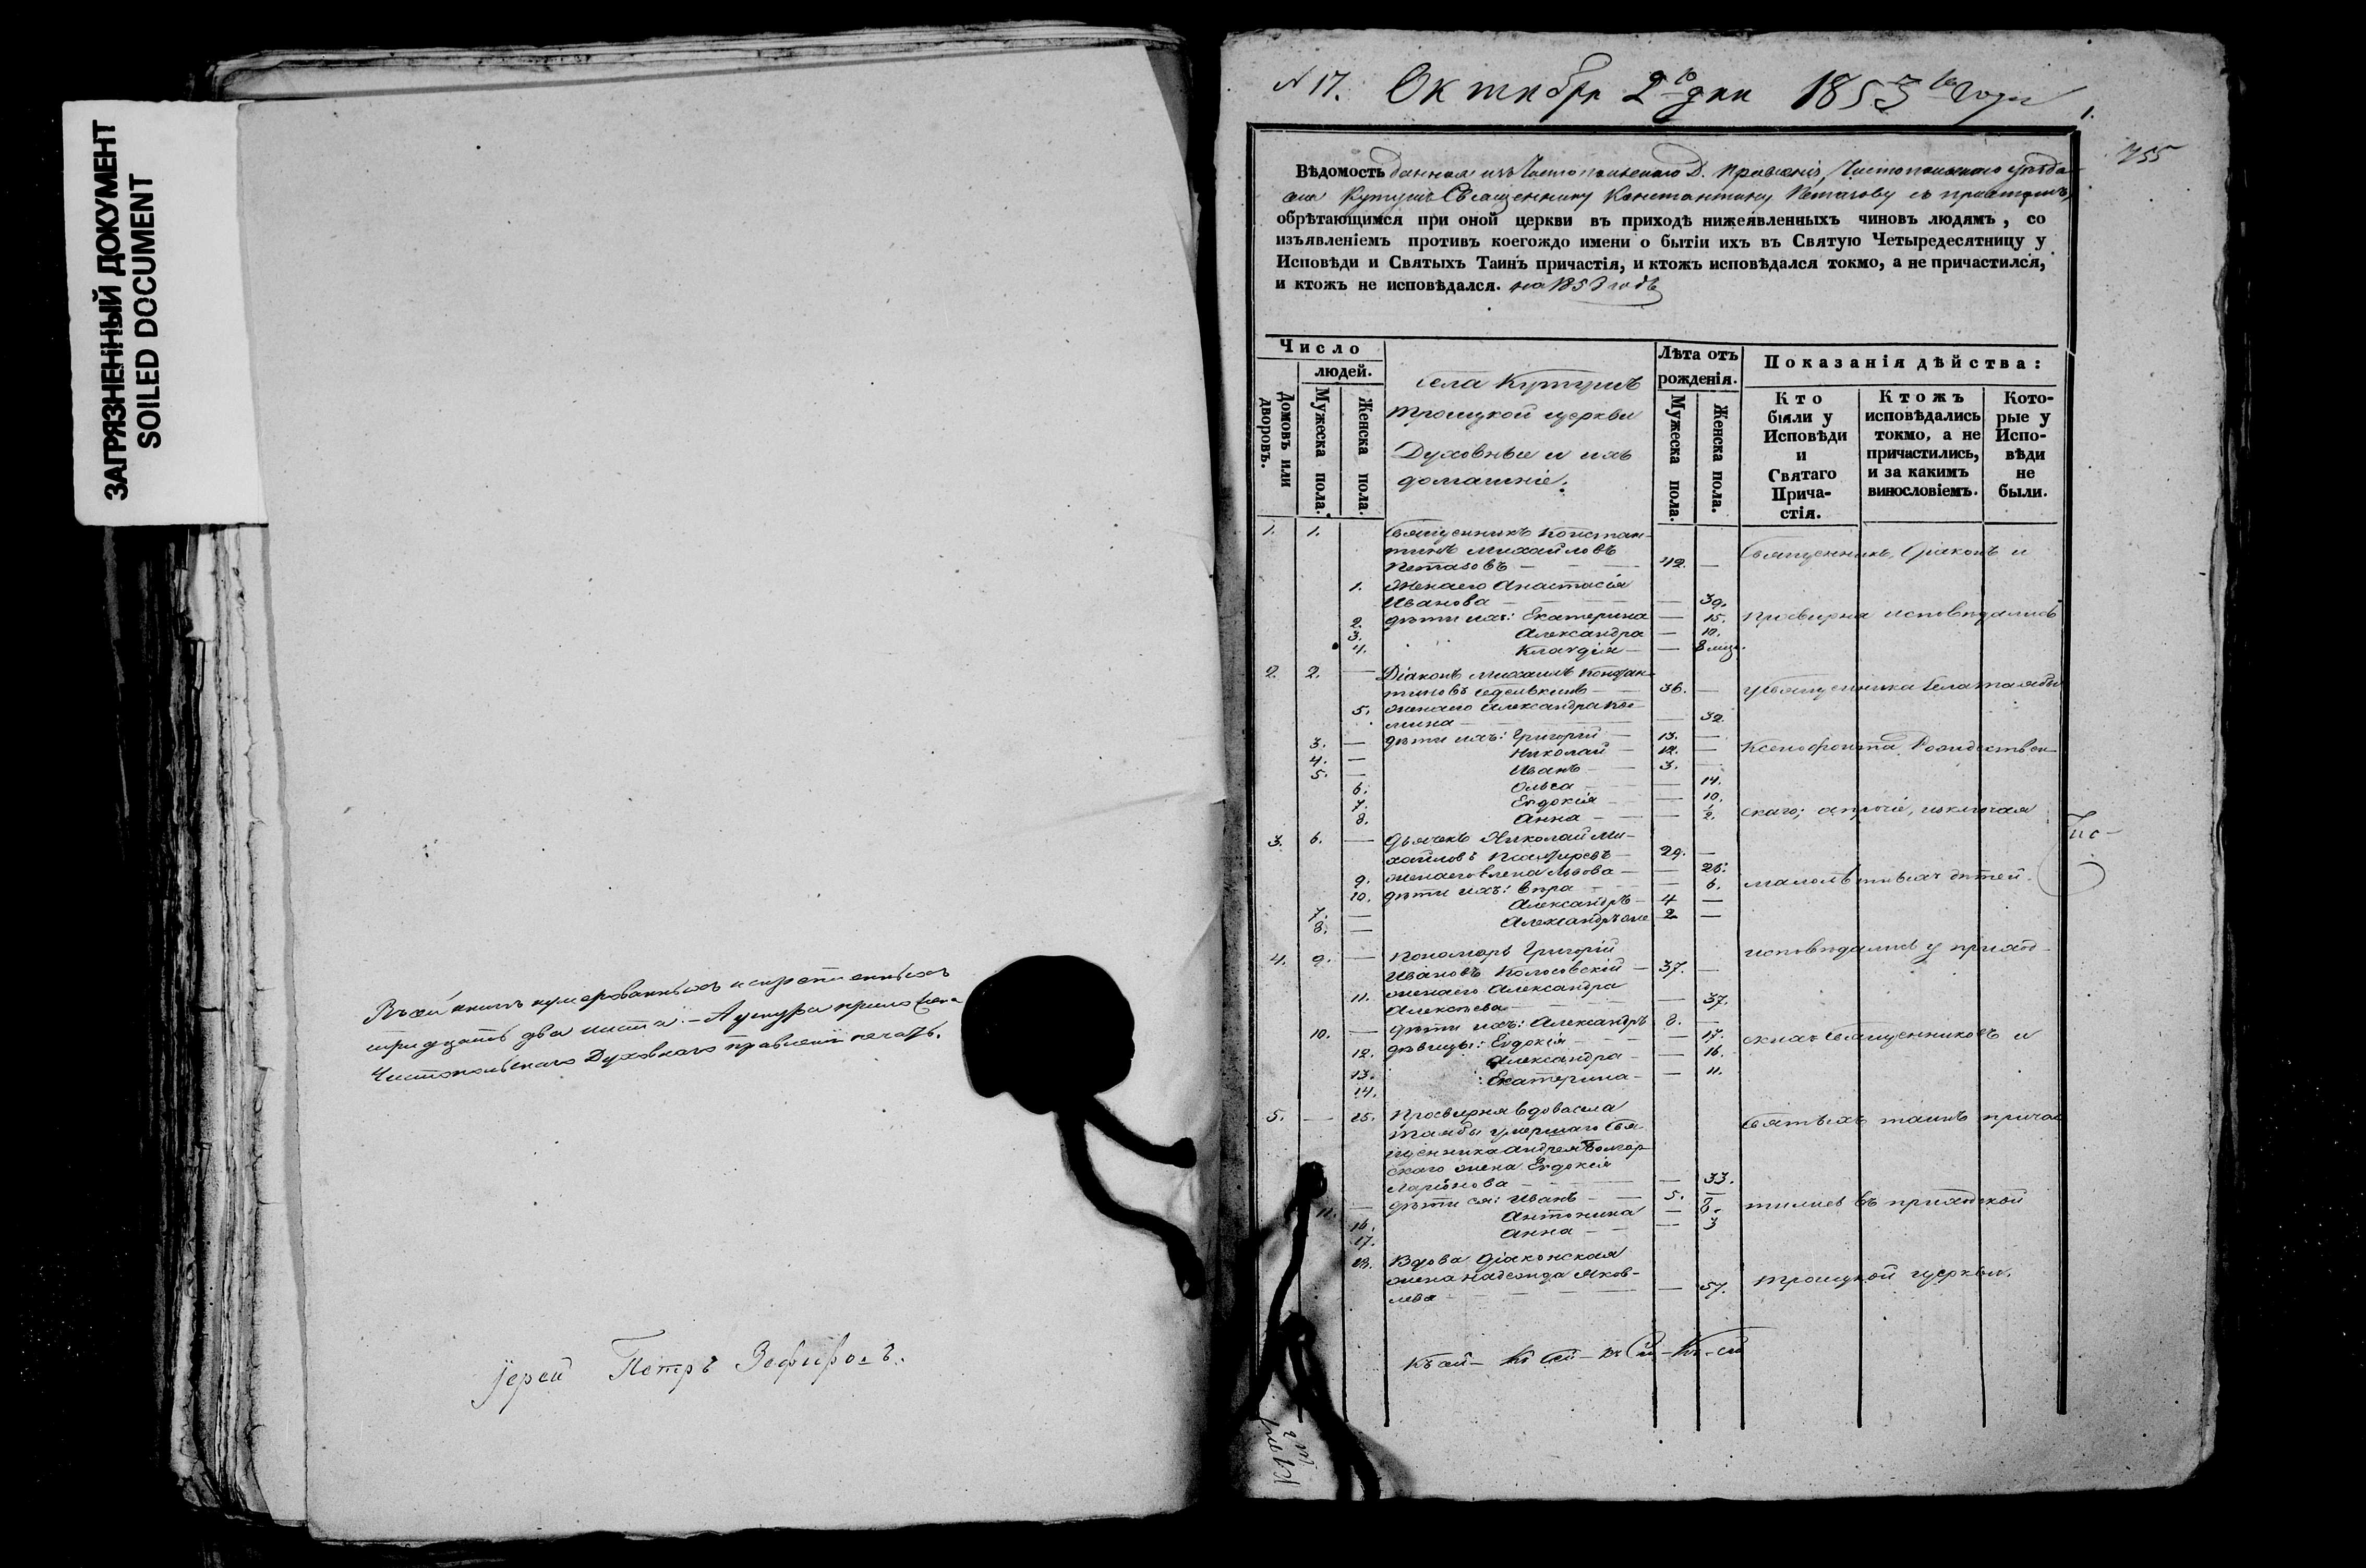 ЗАГРЯЗНЕННЫЙ ДОКУМЕНТ
SOILED DOCUMENT
два листа. – А шнура приложена
Чистопольскаго Духовнаго правленія печать.
Іерей Петръ Зефировъ.
N 17. Октября 2го дня 1853го года
1.
755
Вѣдомость данная изъ Чистопольскаго Д. Правленія, Чистопольскаго уѣзда
села Кутушъ Священнику Константину съ причтомъ,
обрѣтающимся при оной церкви въ приходѣ нижеявленныхъ чиновъ людямъ, со
изъявленіемъ противъ коегождо имени о бытіи ихъ въ Святую Четыредесятницу у
Исповѣди и Святыхъ Таинъ причастія, и ктожъ исповѣдался токмо, а не причастился,
и ктожъ не исповѣдался. на 1853 годъ
Число
людей.
Домовъ или дворовъ.
Мужеска пола.
Женска пола.
села
Троицкой церкви
Духовные и ихъ
домашніе.
Лѣта отъ
рожденія.
Мужеска пола.
Женска пола.
Показанія дѣйства:
Кто
были у
Исповѣди
и
Святаго
Прича-
стія.
Ктожъ
исповѣдались
токмо, а не
причастились,
и за какимъ
винословіемъ.
Кото-
рые у
Испо-
вѣди
не
были.
1. 1. Священникъ Констан-
тинъ Михайловъ
42. —
1. Жена его Анастасія
Иванова — 39.
2. дѣти ихъ: Екатерина — 15.
3. Александра — 10.
4. Клавдія — 8 мѣс.
2. 2. — Діаконъ Михаилъ Констан-
тиновъ 36. —
5. жена его Александра Кос-
мина — 32.
3. — дѣти ихъ: Григорій 13. —
4. — Николай 12. —
5. — Иванъ 3. —
6. Ольга — 14.
7. Евдокія — 10.
8. Анна — ½.
3. 6. — Дьячекъ Николай Ми-
хайловъ 29. —
9. жена его Елена Львова — 26.
10. дѣти ихъ: Вѣра — 6.
7. — Александръ 4 —
8. — Александръ же 2 —
4. 9. — Пономарь Григорій
Ивановъ Колосовскій 37. —
11. жена его Александра
Алексѣева — 37.
10. — дѣти ихъ: Александръ 8. —
12. дѣвицы: Евдокія — 17.
13. Александра — 16.
14. Екатерина — 11.
5. — 15. Просвирня вдова села
умершаго Свя-
щенника Андрея Болгар-
скаго жена Евдокія
Ларіонова — 33.
11. — дѣти ея: Иванъ 5. —
16. Антонина — 8.
17. Анна — 3
18. Вдова діаконская
жена Надежда Яков-
лева — 57.
Священникъ, діаконъ и
просвирня исповѣдались
у священника села
Ксенофонта Рождествен-
скаго; а прочіе, исключая
малолѣтныхъ дѣтей
исповѣдались у приход-
скихъ священниковъ и
святыхъ таинъ прича-
стились въ приходской
Троицкой церкви.
Къ сей –